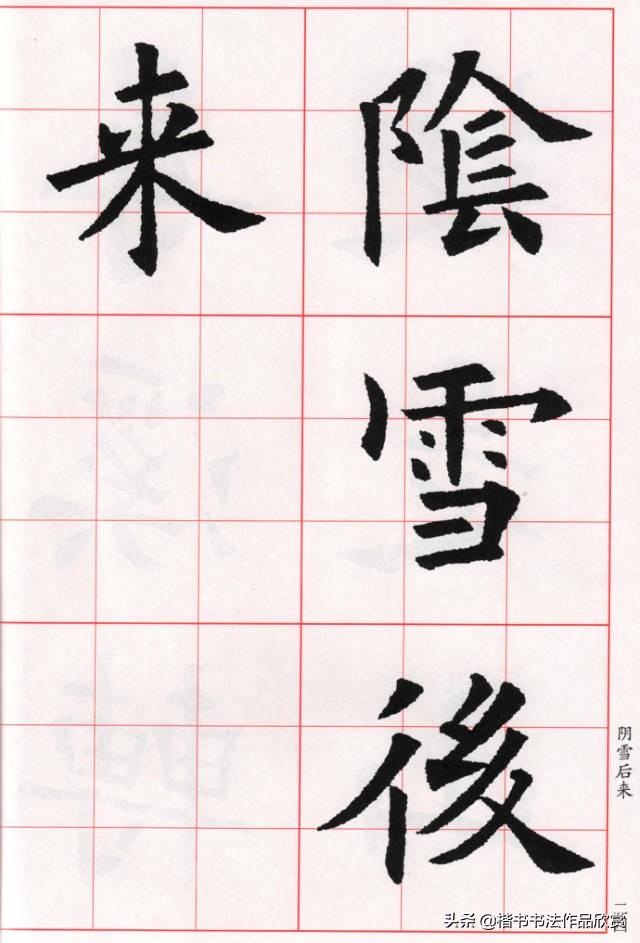 陰雪後
来
阴雪后来
头条 @楷书书法作品欣赏